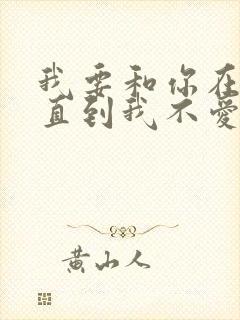 我要和你在
直到我不爱
黄山人